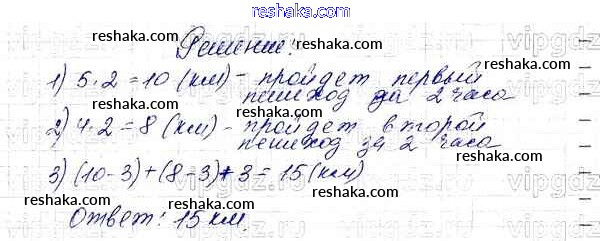 reshaka.com
Решение:
reshaka.com reshaka.com
1) 5·2=10 (км) - пройдет первый
пешеход за 2 часа
reshaka.com reshaka.com
2) 4·2=8 (км) - пройдет второй
пешеход за 2 часа
reshaka.com reshaka.com
3) (10-3)+(8-3)+3=15 (км)
reshaka.com reshaka.com
Ответ: 15 км.
reshaka.com